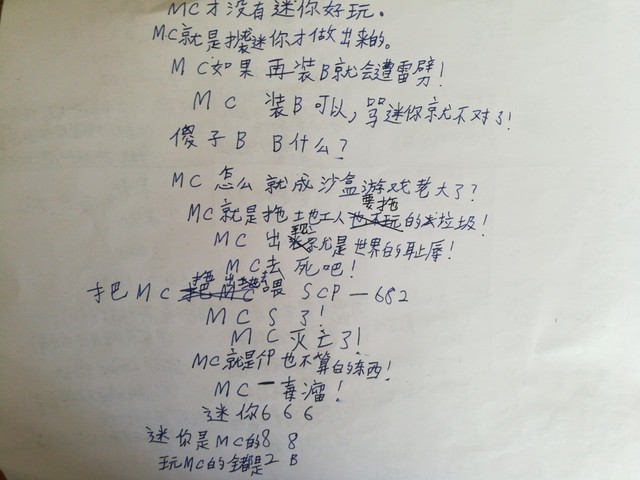 MC才没有迷你好玩。
MC就是抄袭迷你才做出来的。
MC如果再装B就会遭雷劈!
MC 装B可以,骂迷你就不对了!
傻子B B什么?
MC 怎么就成沙盒游戏老大了?
MC就是拖 工人要拖的垃圾!
MC 出现就是世界的耻辱!
MC去死吧!
把MC 喂 SCP-682
MC S了!
MC灭亡了!
MC就是 也不算的东西!
MC 一毒瘤!
迷你666
迷你是MC的88
玩MC的全都是2B